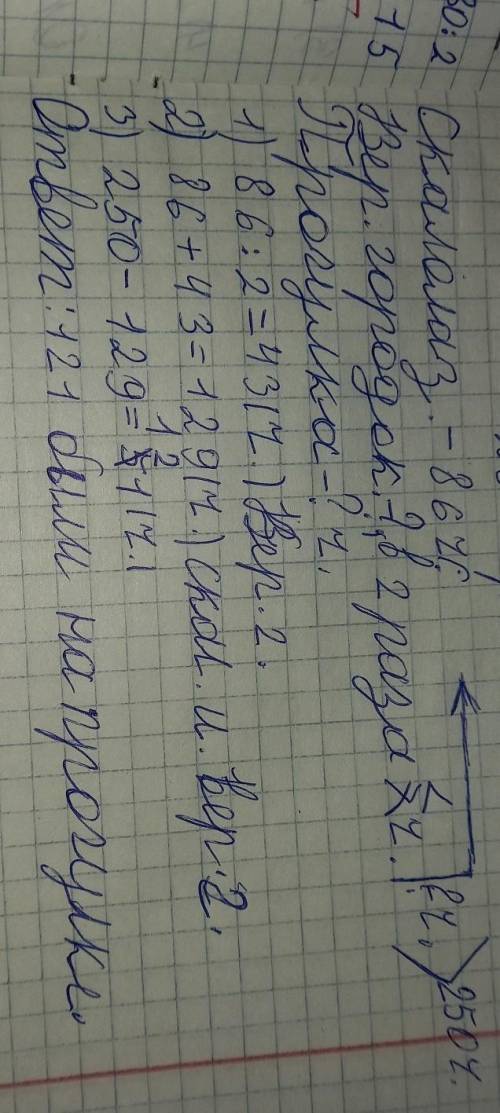 30:2
15
Скалолаз. - 86 ч.
Вер. городок. - ?, в 2 раза < ч. ? ч. 250 ч.
Прогулка - ? ч.
1) 86 : 2 = 43 (ч.) Вер. г.
2) 86 + 43 = 129 (ч.) скал. и. Вер. г.
3) 250 - 129 = 121 (ч.)
Ответ: 121 были на прогулке.